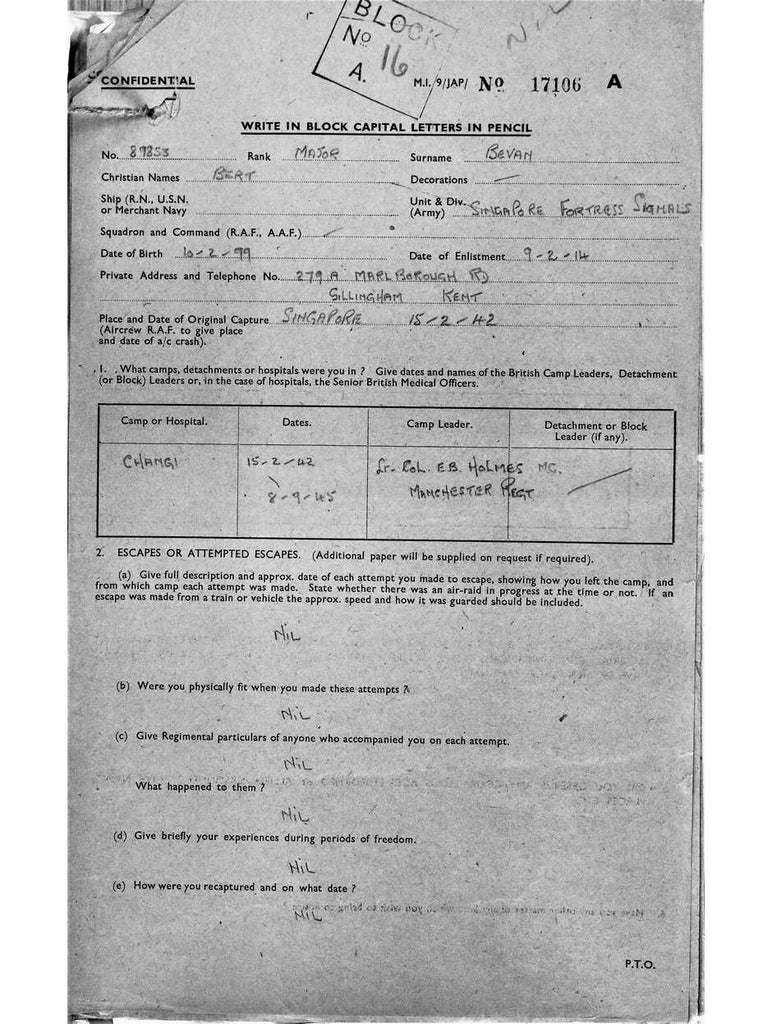 BLOCK
No 16
A.
NIL
CONFIDENTIAL
M.I./9/JAP/ No 17106 A
WRITE IN BLOCK CAPITAL LETTERS IN PENCIL
No. 89853 Rank MAJOR Surname BEVAN
Christian Names BERT Decorations —
Ship (R.N., U.S.N. or Merchant Navy
Unit & Div. (Army) SINGAPORE FORTRESS SIGNALS
Squadron and Command (R.A.F., A.A.F.)
Date of Birth 10-2-99 Date of Enlistment 9-2-14
Private Address and Telephone No. 279A MARLBOROUGH RD
GILLINGHAM KENT
Place and Date of Original Capture SINGAPORE 15-2-42
(Aircrew R.A.F. to give place
and date of a/c crash).
1. What camps, detachments or hospitals were you in ? Give dates and names of the British Camp Leaders, Detachment
(or Block) Leaders or, in the case of hospitals, the Senior British Medical Officers.
Camp or Hospital. Dates. Camp Leader. Detachment or Block
Leader (if any).
CHANGI 15-2-42 Lt. COL. E.B. HOLMES MC. —
8-9-45 MANCHESTER REGT
2. ESCAPES OR ATTEMPTED ESCAPES. (Additional paper will be supplied on request if required).
(a) Give full description and approx. date of each attempt you made to escape, showing how you left the camp, and
from which camp each attempt was made. State whether there was an air-raid in progress at the time or not. If an
escape was made from a train or vehicle the approx. speed and how it was guarded should be included.
NIL
(b) Were you physically fit when you made these attempts ?
NIL
(c) Give Regimental particulars of anyone who accompanied you on each attempt.
NIL
What happened to them ?
NIL
(d) Give briefly your experiences during periods of freedom.
NIL
(e) How were you recaptured and on what date ?
NIL
P.T.O.